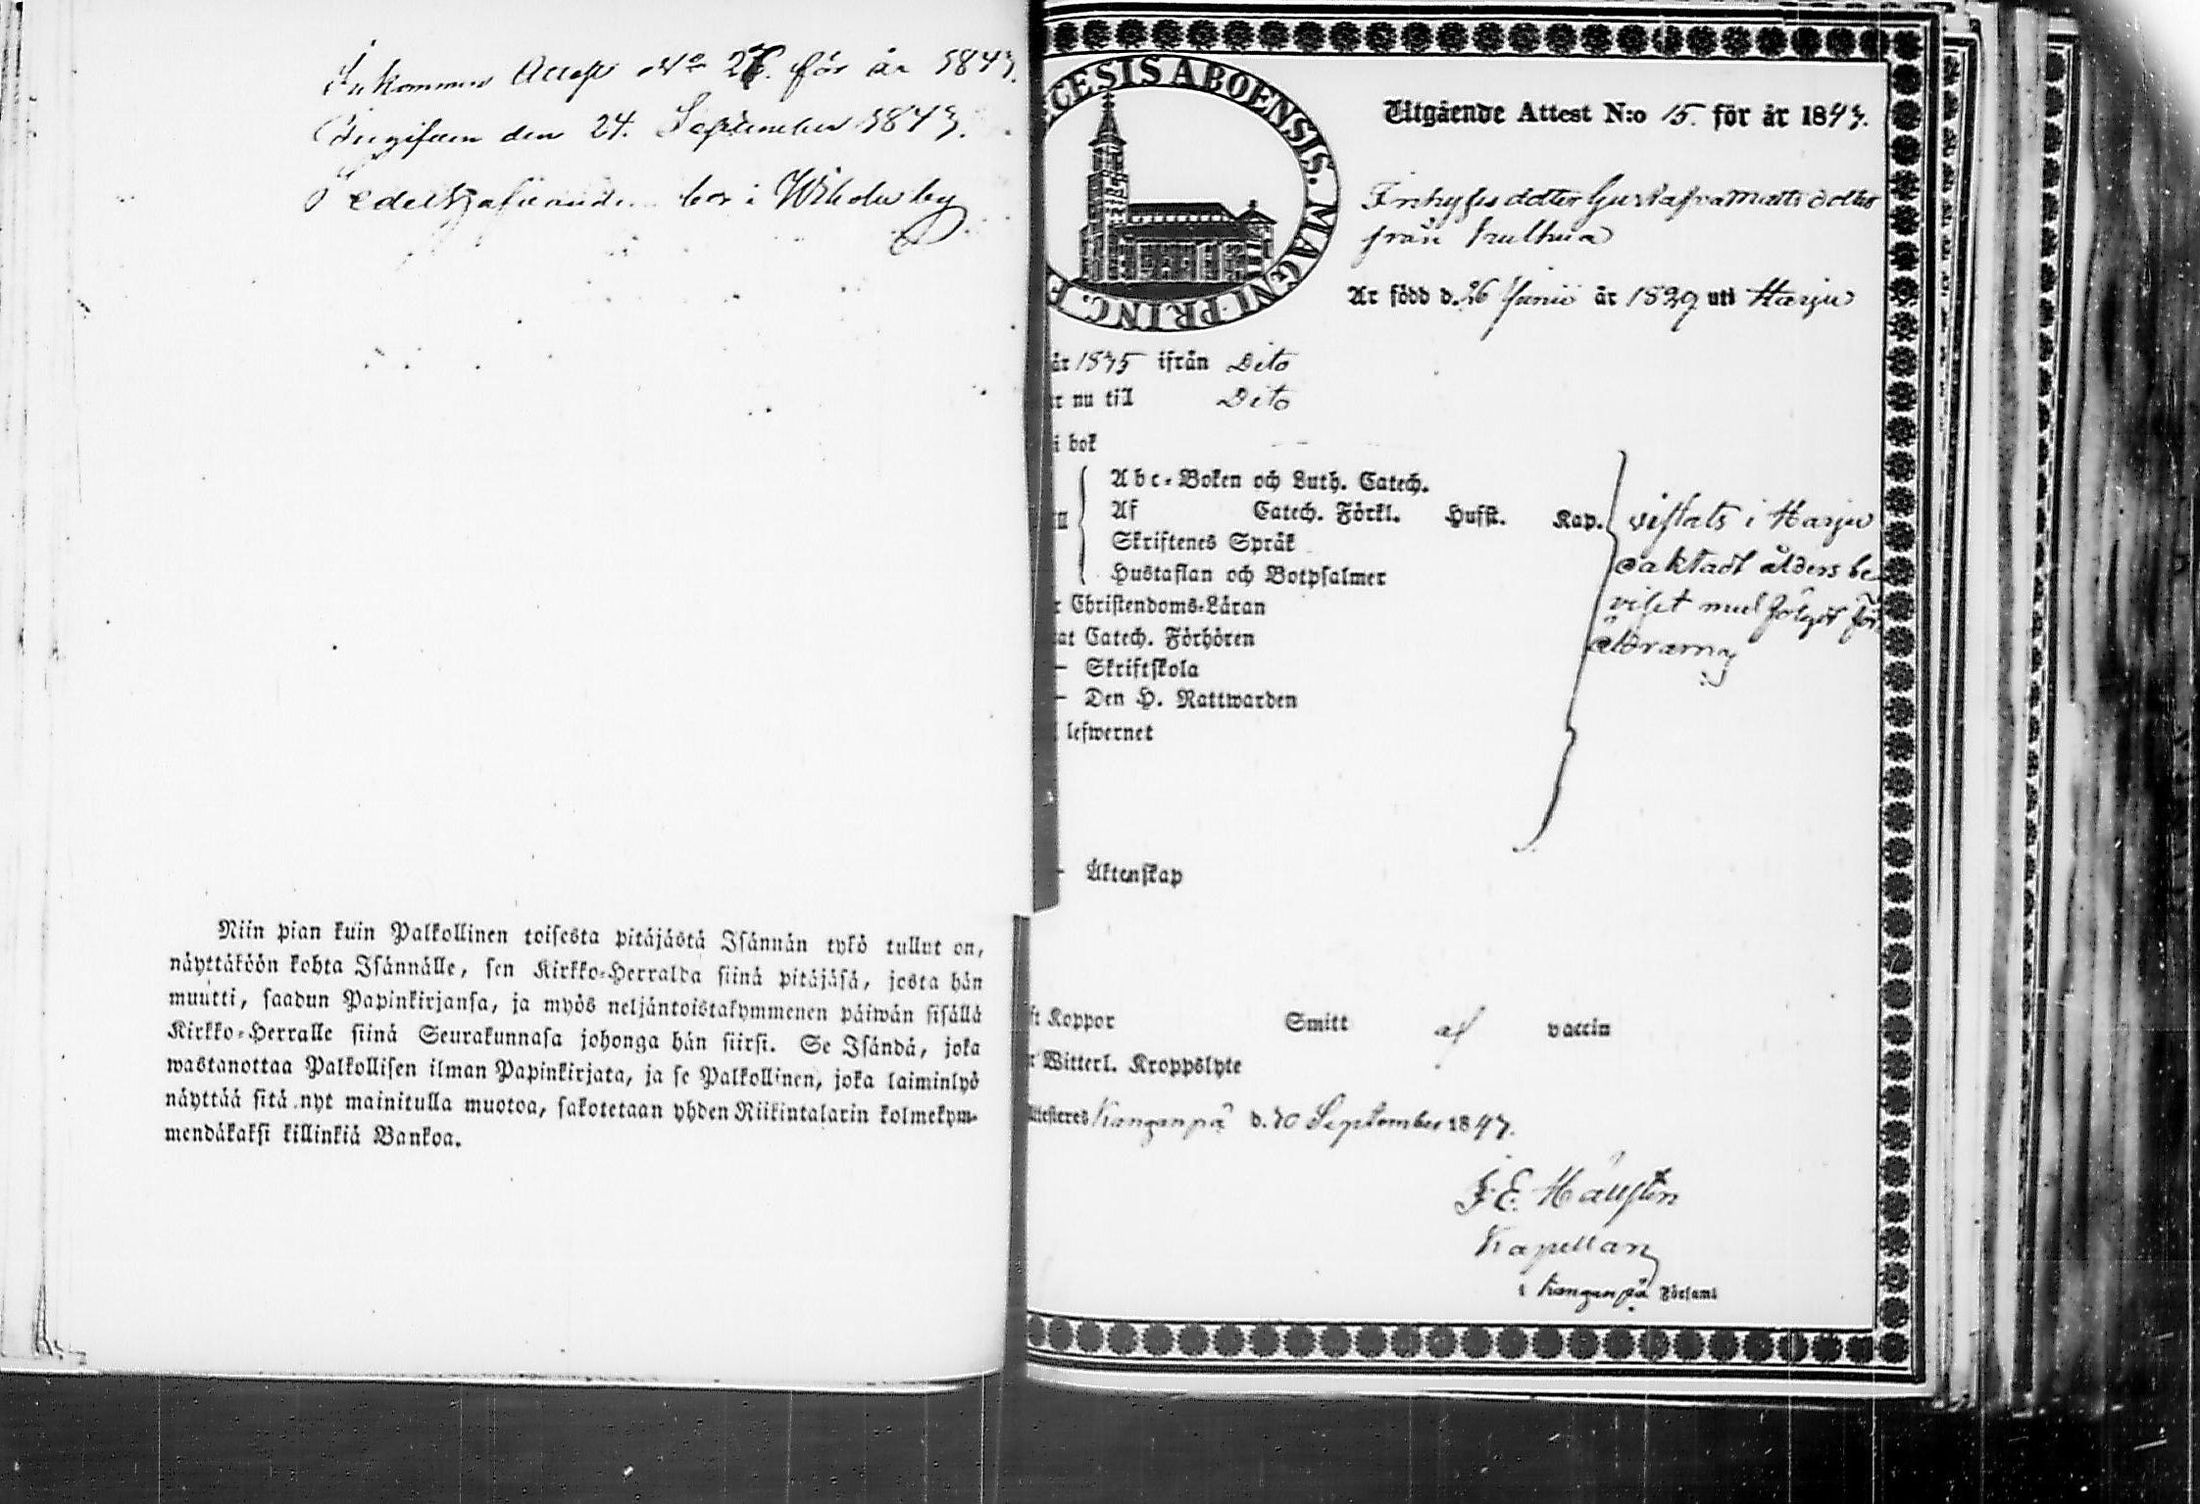 Inkommen Attest No 26. för år 1843.
Ingifven den 24. September 1843.
bor i Wiholaby
Niin pian kuin Palkollinen toisesta pitäjästä Isännän tykö tullut on,
näyttäköön kohta Isännälle, sen Kirkko-Herralda siinä pitäjäsä, josta hän
muutti, saadun Papinkirjansa, ja myös neljäntoistakymmenen päiwän sisällä
Kirkko-Herralle siinä Seurakunnasa johonga hän siirsi. Se Isändä, joka
wastanottaa Palkollisen ilman Papinkirjata, ja se Palkollinen, joka laiminlyö
näyttää sitä nyt mainitulla muotoa, sakotetaan yhden Riikintalarin kolmekym-
mendäkaksi killinkiä Bankoa.
CESIS ABOENSIS. MAGNI PRINC. F
Utgående Attest N:o 15. för år 1843.
Inhyses dotter Gustafva Matts dotter
från
Är född d. 26 Junii år 1829 uti Harju
år 1835 ifrån Dito
r nu till Dito
i bok
Abc-Boken och Luth. Catech.
Af Catech. Förkl. Hufst. Kap.
Skriftenes Språk
Hustaflan och Botpsalmer
vistats i Harju
oaktadt ålders be-
viset med följet för
äldrarna
r Christendoms-Läran
at Catech. Förhören
— Skriftskola
— Den H. Nattwarden
lefwernet
— Äktenskap
ft Koppor Smitt af vaccin
r Witterl. Kroppslyte
Attesteres Kanganpä d. 20 September 1843.
Kapellan
i Kanganpä Förfaml